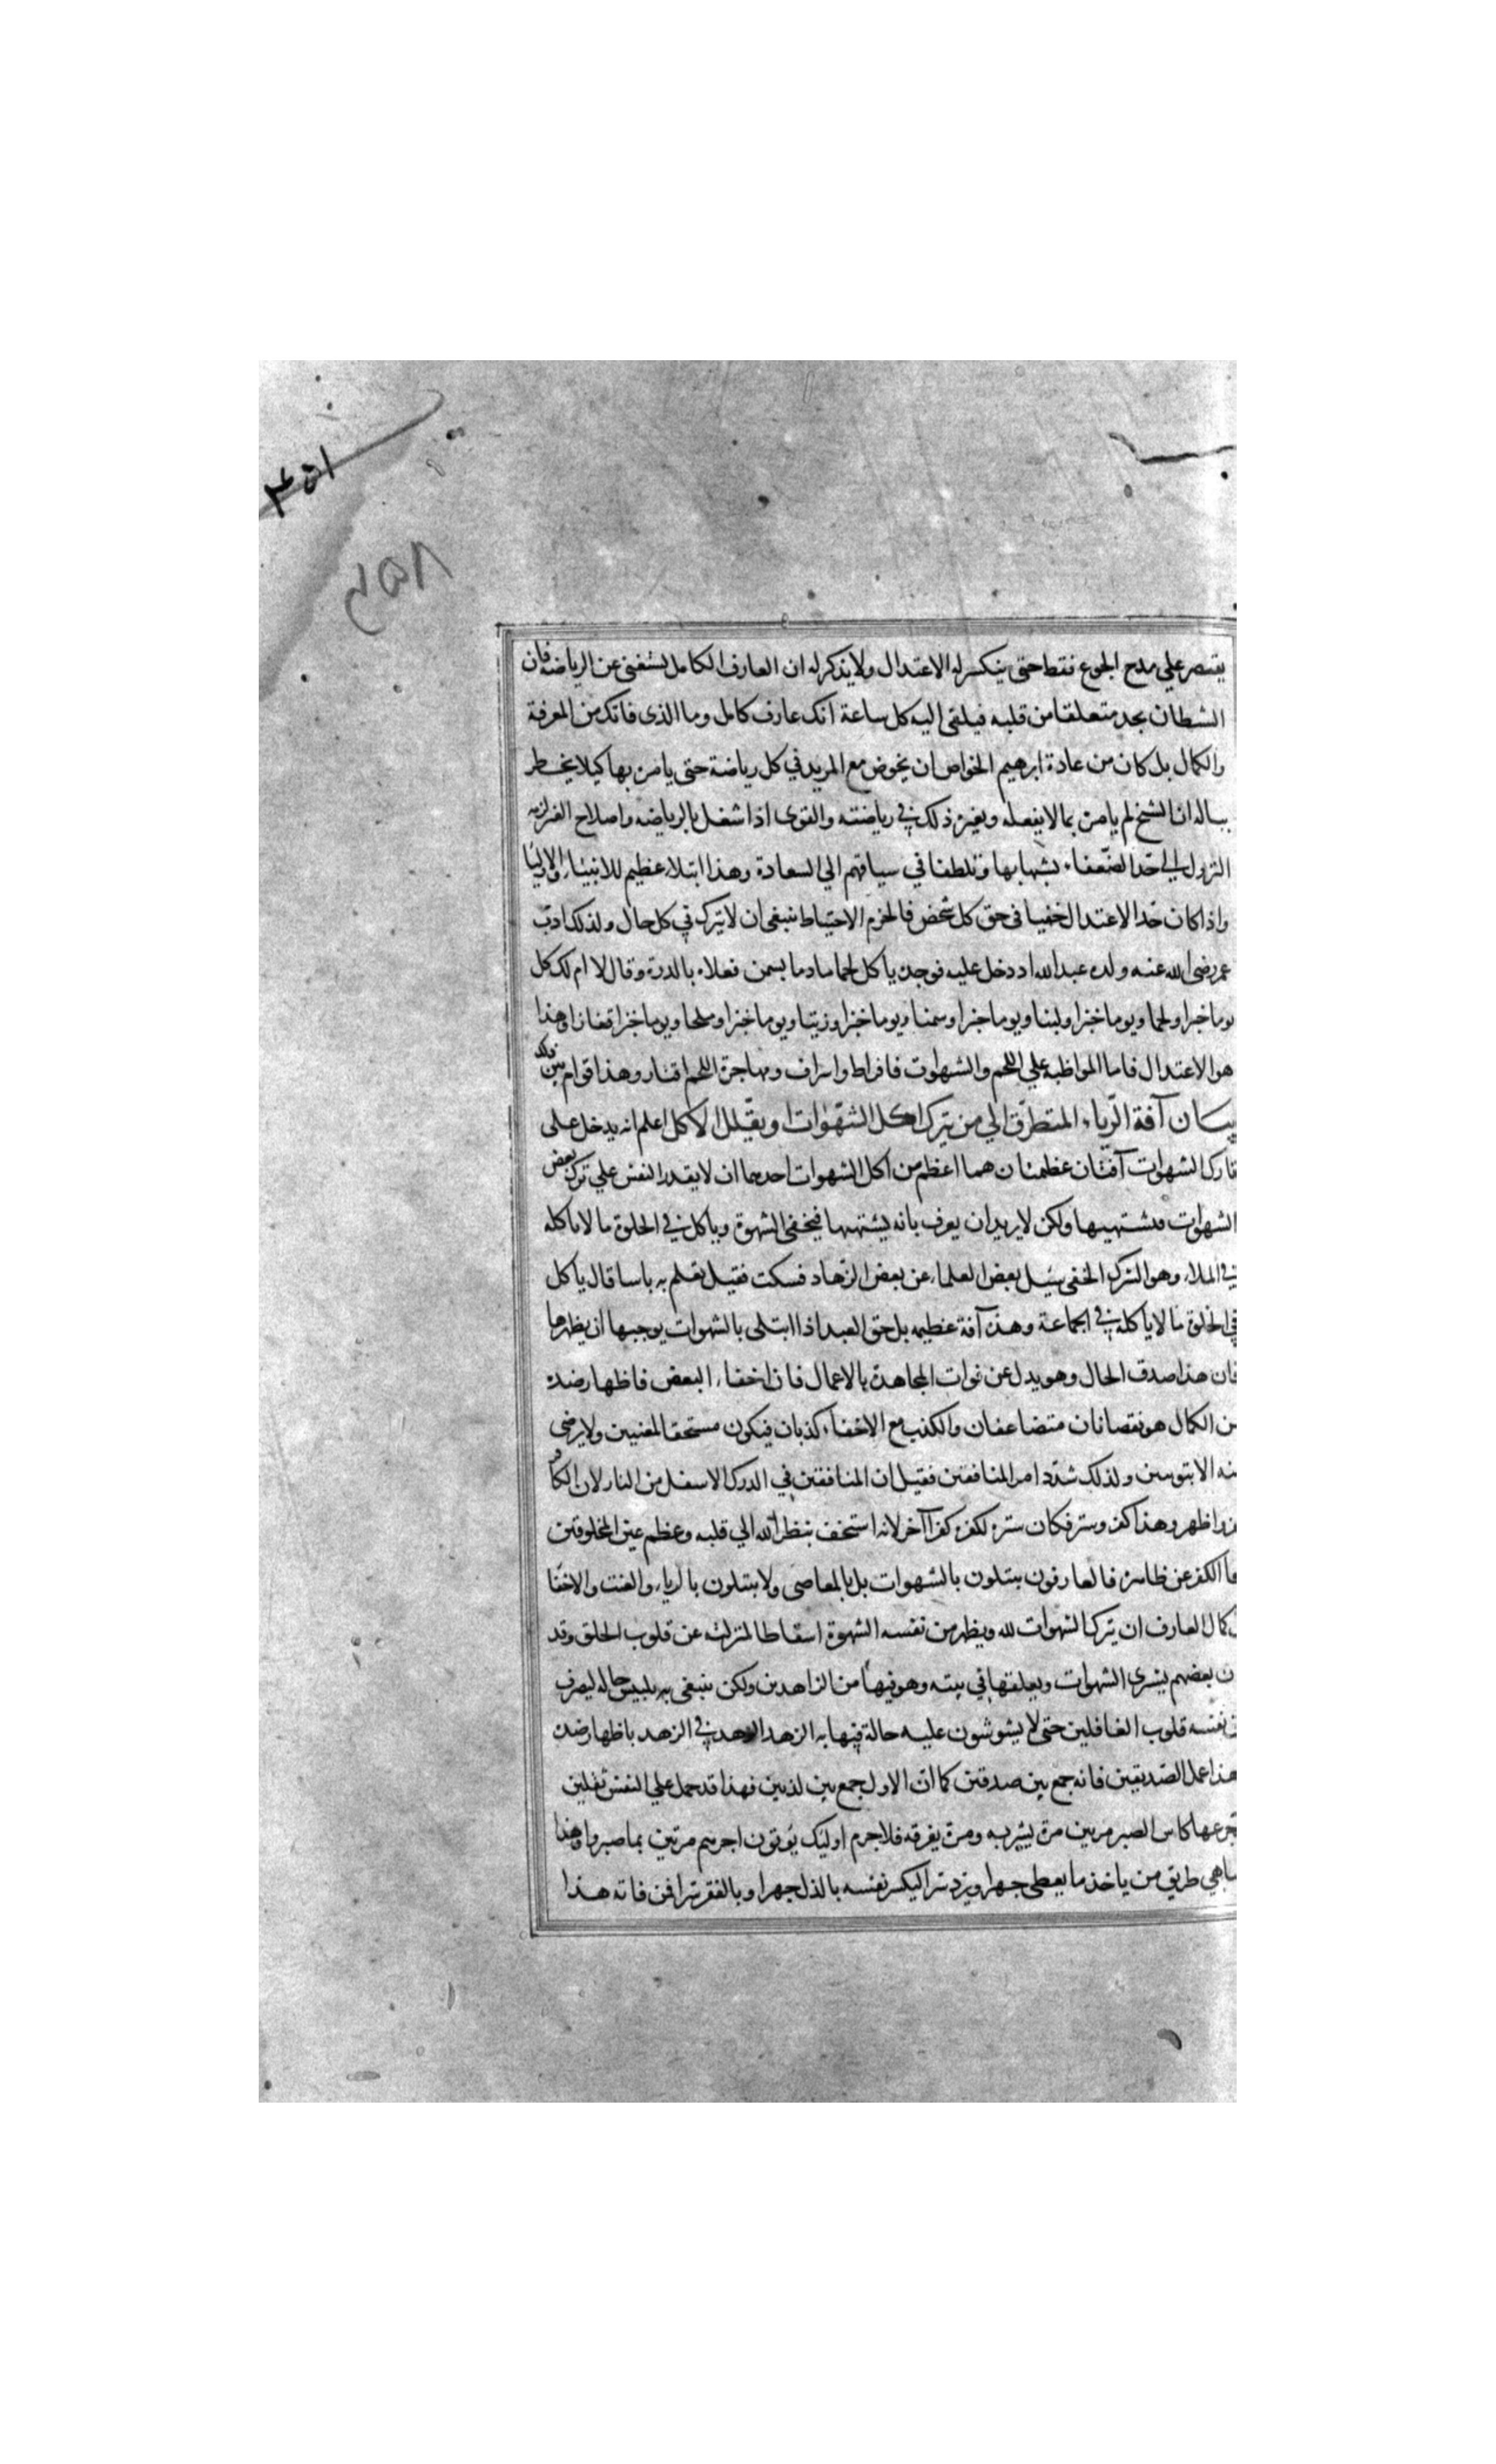 ٤٥١
٤٥٨
يقتصر علي مدح الجوع فقط حتى ينكسر له الاعتدال ولا يذكر له ان العارف الكامل يستغنى عن الرياضه فان
الشطان يجد متعلقا من قلبه فيلقى اليه كل ساعة انك عارف كامل وما الذى فاتك من المعرفة
والكمال بل كان من عادة ابرهيم الخواص ان يخوض مع المريد في كل رياضة حتى يامن بها كيلا يخطر
بباله ان الشيخ لم يامن بما لا يفعله وبغير ذلك في رياضته والقوى اذا شغل بالرياضه واصلاح الغير لزمه
النزول الي حد الضعفاء بشهابها وتلطفا في سياقتهم الي السعادة وهذا ابتلاء عظيم للانبياء والاوليا
واذا كان حد الاعتدال خفيا فى حق كل شخص فالحزم الاحتياط ينبغى ان لا يترك في كل حال ولذلك ادب
عمر رضى الله عنه ولده عبد الله اذ دخل عليه فوجده ياكل لحما مادما بسمن فعلاه بالدرة وقال لا ام لك كل
يوما خبزا ولحما ويوما خبزا ولبنا ويوما خبزا وسمنا ويوما خبزا وزيتا ويوما خبزا وملحا ويوما خبزا قفارا وهذا
هو الاعتدال فاما المواظبه علي اللحم والشهوات فافراط واسراف ومهاجرة اللحم اقتار وهذا قوام بين ذلك
بيان آفة الرياء المتطرق الي من يترك اكل الشهوات ويقلل الاكل اعلم انه يدخل على
تارك الشهوات آفتان عظمتان هما اعظم من اكل الشهوات احدهما ان لا يقدر النفس علي ترك بعض
الشهوات فيشتهيها ولكن لا يريد ان يعرف بانه يشتهيها فيخفى الشهوة وياكل في الخلوة ما لا ياكله
في الملاء وهو الشرك الخفى سئل بعض العلماء عن بعض الزهاد فسكت فقيل تعلم به باسا قال ياكل
في الخلوة ما لا ياكله في الجماعة وهذه آفة عظيمه بل حق العبد اذا ابتلى بالشهوات يوجبها ان يظهرها
فان هذا صدق الحال وهو يدل عن فوات المجاهدة بالاعمال فان اخفاء البعض فاظهار ضده
من الكمال هو نقصانان متضاعفان والكذب مع الاخفاء كذبان فيكون مستحقا لمقتين ولا يرضى
منه الا بتوبتين ولذلك شدد امر المنافقين فقيل ان المنافقين في الدرك الاسفل من النار لان الكافر
اظهر وهذا كفر وستر فكان ستره لكفره كفرا آخر لانه استخف بنظر الله الي قلبه وعظم عين المخلوقين
الكفر عن ظاهره فالعارفون يبتلون بالشهوات بل بالمعاصى ولا يبتلون بالرياء والغش والاخفا
كمال العارف ان يترك الشهوات لله ويظهر من نفسه الشهوة اسقاطا لمنزلته عن قلوب الخلق وقد
بعضهم يشترى الشهوات ويعلقها في بيته وهو فيها من الزاهدين ولكن ينبغى به يلبس حاله ليصرف
نفسه قلوب الغافلين حتى لا يشوشون عليه حالة فنهايه الزهد الزهد في الزهد باظهار ضده
هذا عمل الصديقين فانه جمع بين صدقين كما ان الاول جمع بين كذبين فهذا قد حمل علي النفس ثقلين
جرعها كاس الصبر مرتين مرة بشربه ومرة بفرقه فلا جرم اوليك يؤتون اجرهم مرتين بما صبروا وهذا
يضاهي طريق من ياخذ ما يعطى جهرا ويرد سرا ليكسر نفسه بالذل جهرا وبالفقر سرا فمن فاته هذا